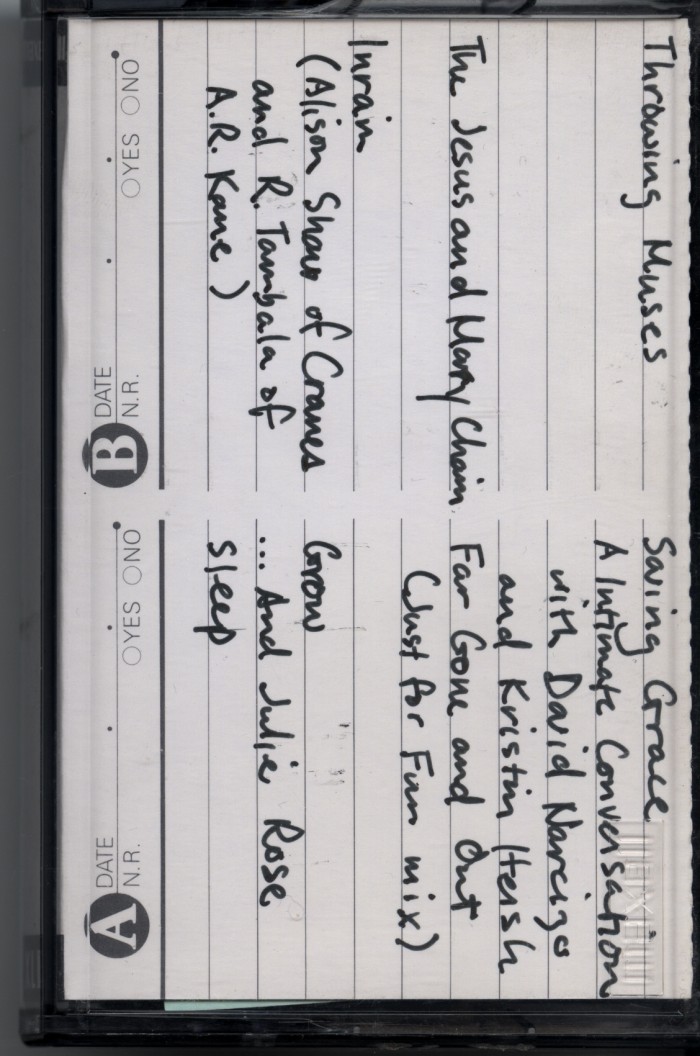 Throwing Muses Saving Grace
A Intimate Conversation
with David Narcizo
and Kristin Hersh
The Jesus and Mary Chain Far Gone and Out
(Just for Fun mix)
Inrain
(Alison Shaw of Cranes Grow
and R. Tambala of ... And Julie Rose
A.R. Kane) sleep
A DATE N.R. YES NO
B DATE N.R. YES NO